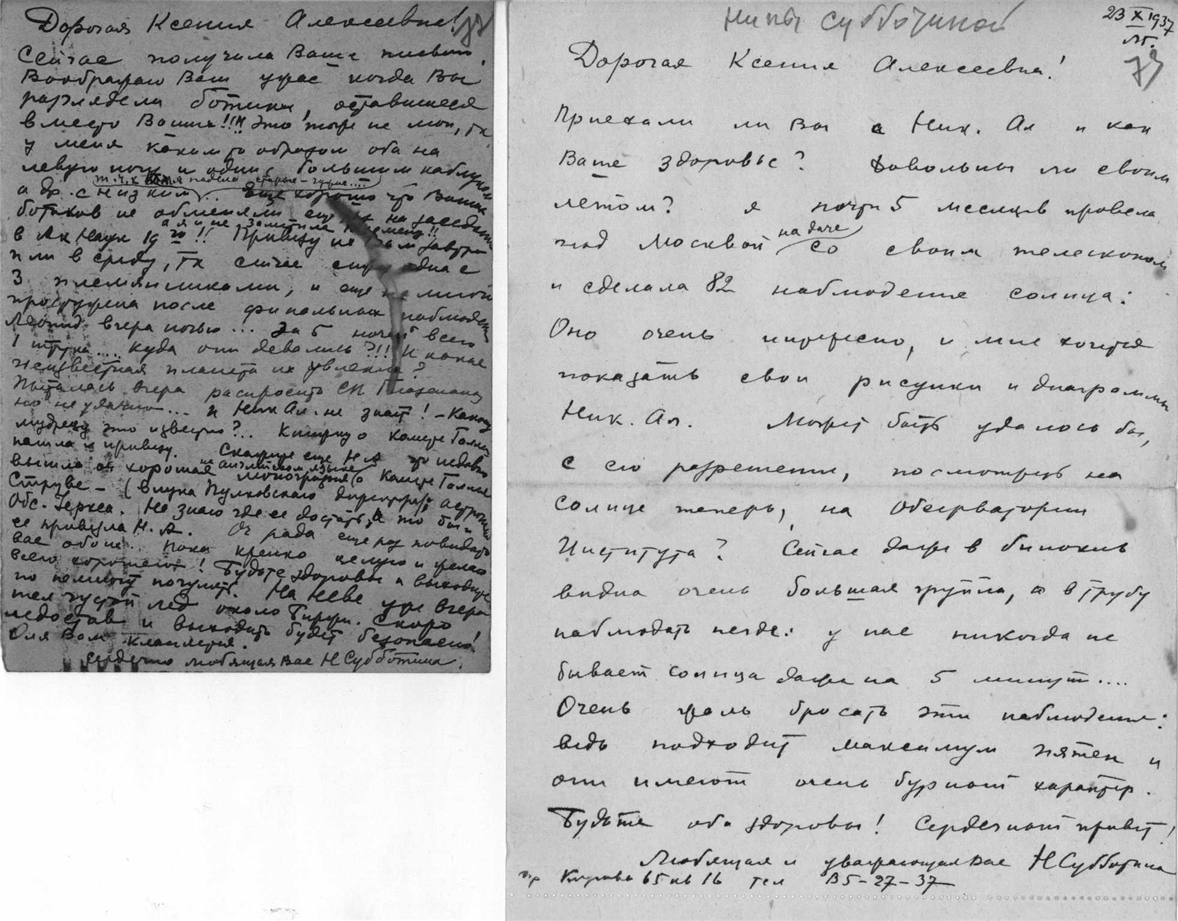 Дорогая Ксения Алексеевна!
Сейчас получила Ваше письмо.
Воображаю Ваш ужас когда Вы
разглядели ботики, оставшиеся
вместо Ваших!!!! Это тоже не мои, тк
у меня каким то образом оба на
левую ногу и один с большим каблуком
а др. с низким... Еще хорошо что Ваших
ботиков не обменяли еще на заседании
в Ак Наук
или в среду, тк сейчас сижу одна с
3 племянниками, и еще не
простужена после финальных наблюден
Леонид вчера ночью... За 5 ночей всего
1 штука.... куда они девались?!!! И какая
неизвестная планета их увлекла?
Пыталась вчера расспросить СП Глазенапа
но неудачно... и Ник Ал. не знает! – Какому
мудрецу это известно?.. Книжку о комете Галлея
нашла и привезу. Скажите еще Н А что недавно
вышла оч хорошая на английском языке монография о комете Галлея
Струве – (внука Пулковского директора) астроном
Обс. Йеркса. Не знаю где ее достать, а то бы и
ее привезла Н. А. Оч рада еще раз повидать
вас обоих... Пока крепко целую и желаю
всего хорошего! Будьте здоровы и выходите
по немногу погулять. На Неве уже вчера
шел густой лед около Биржи. Скоро
ледостав и выходить будет безопасно!
Для Вам кланяется.
Сердечно любящая Вас Н Субботина.
Нины Субботиной
23 X 1937
Дорогая Ксения Алексеевна!
Приехали ли Вы с Ник. Ал и как
Ваше здоровье? Довольны ли своим
летом? я почти 5 месяцев провела
под Москвой на даче со своим телескопом
и сделала 82 наблюдения солнца:
Оно очень интересно, и мне хочется
показать свои рисунки и диаграммы
Ник. Ал. Может быть удалось бы,
с его разрешения, посмотреть на
солнце теперь, на Обсерватории
Института? Сейчас даже в бинокль
видна очень большая группа, а в трубу
наблюдать негде: у нас никогда не
бывает солнца даже на 5 минут....
Очень жаль бросать эти наблюдения:
ведь подходит максимум пятен и
они имеют очень бурный характер.
Будьте оба здоровы! Сердечный привет!
Любящая и уважающая Вас Н Субботина
пр Кирова 65 кв 16 тел В5-27-37